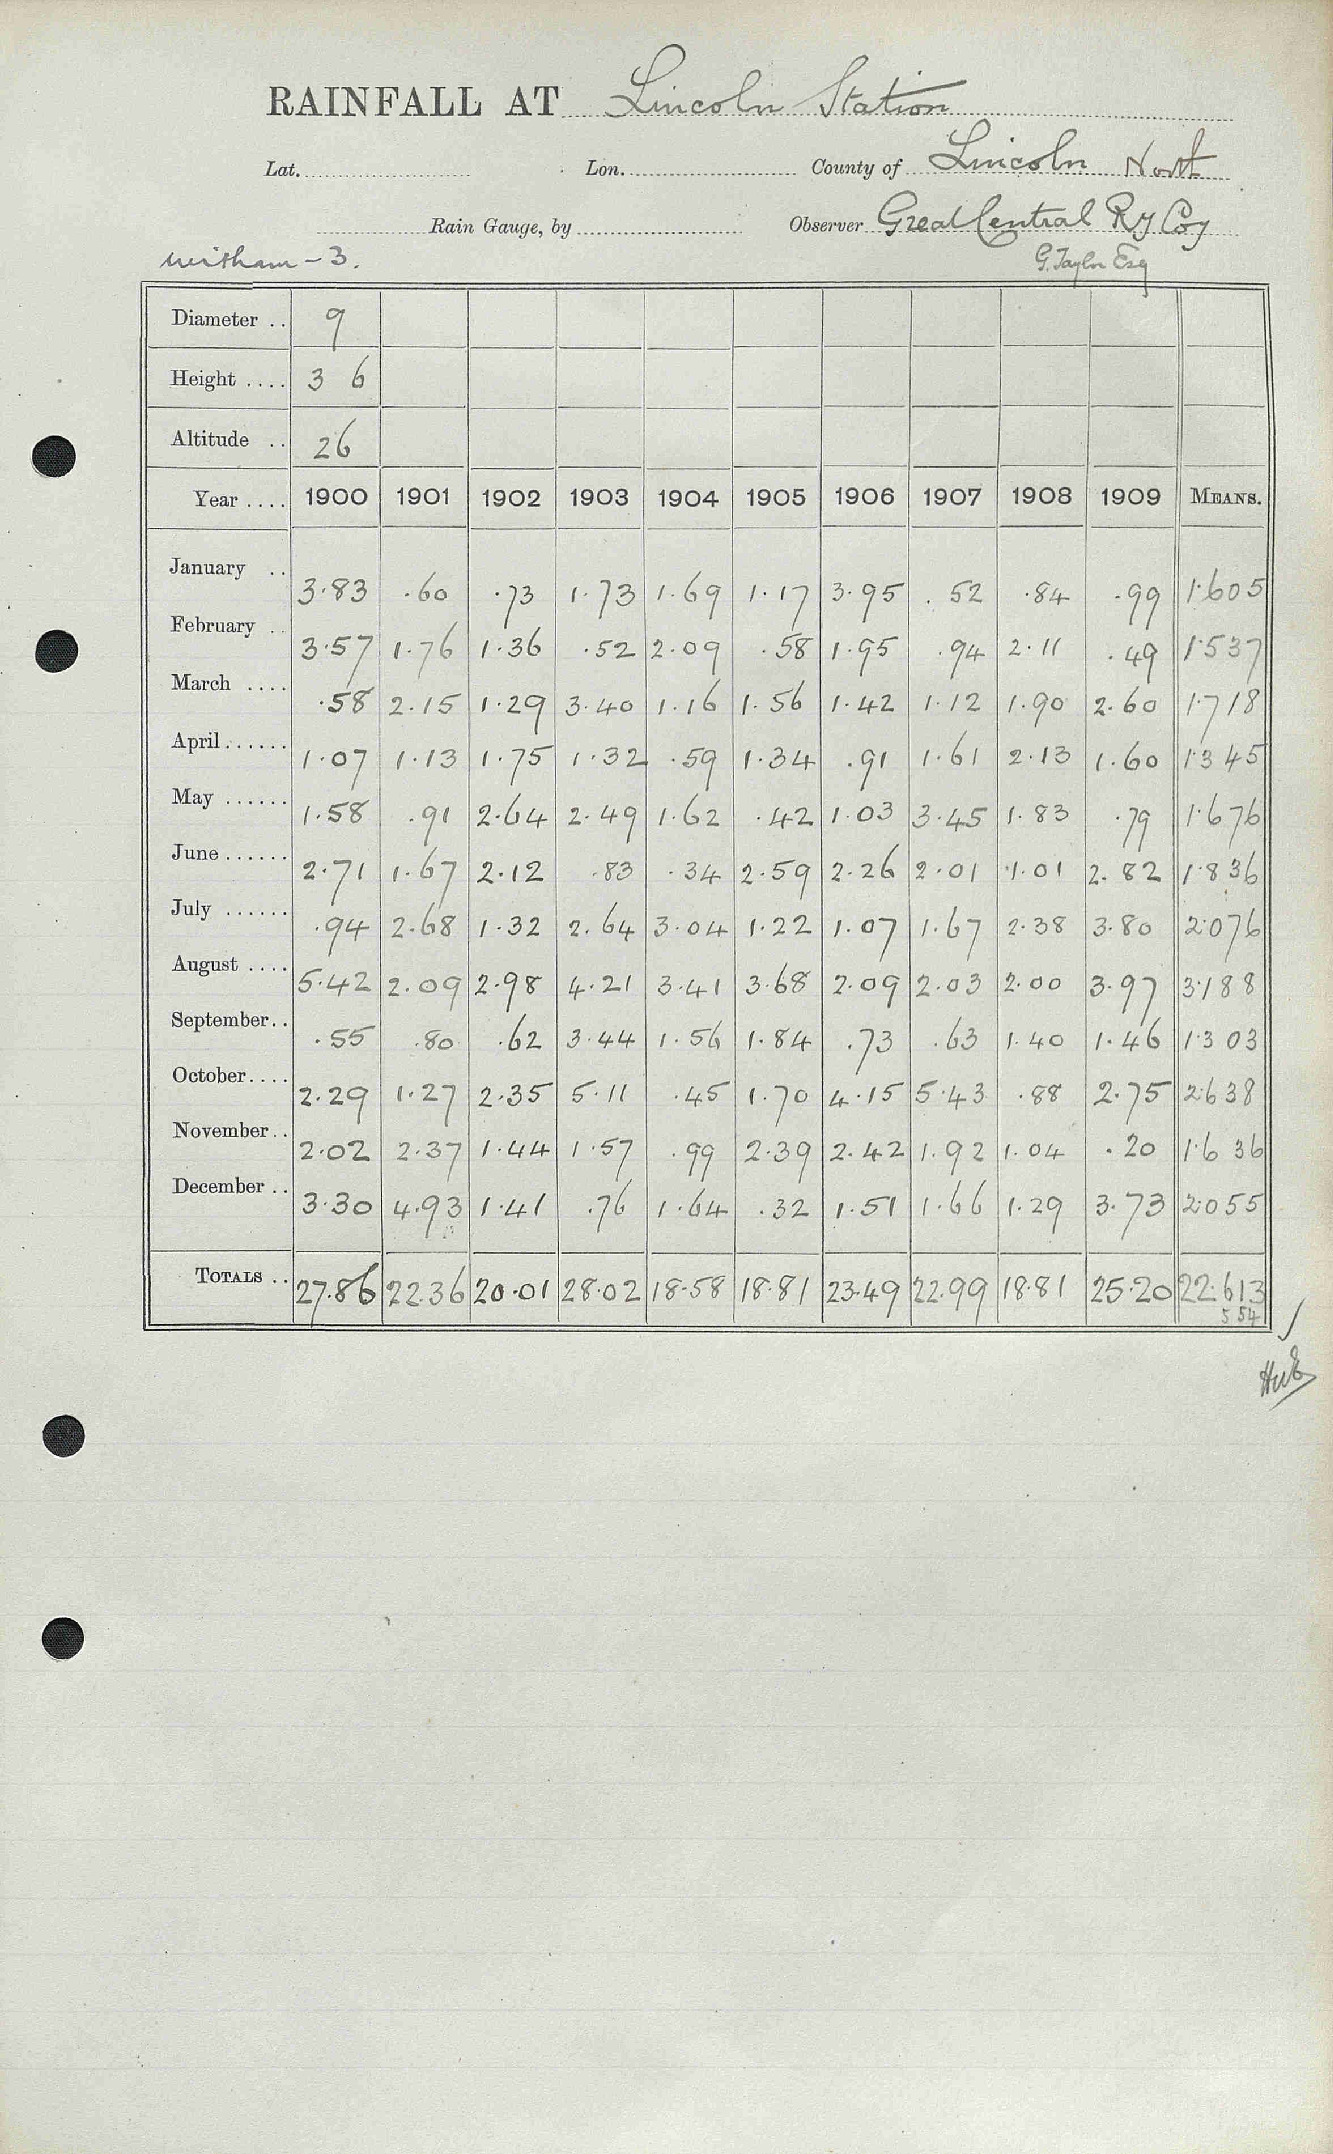 RAINFALL AT Lincoln Station
Lat. Lon. County of Lincoln North
Rain Gauge, by Observer Great Central Ry Coy
Witham - 3. G. Taylor Esq
Diameter .. 9
Height .... 3 6
Altitude .. 26
Year .... 1900 1901 1902 1903 1904 1905 1906 1907 1908 1909 MEANS.
January .. 3.83 .60 .73 1.73 1.69 1.17 3.95 .52 .84 .99 1.605
February .. 3.57 1.76 1.36 .52 2.09 .58 1.95 .94 2.11 .49 1.537
March .... .58 2.15 1.29 3.40 1.16 1.56 1.42 1.12 1.90 2.60 1.718
April...... 1.07 1.13 1.75 1.32 .59 1.34 .91 1.61 2.13 1.60 1.345
May ...... 1.58 .91 2.64 2.49 1.62 .42 1.03 3.45 1.83 .79 1.676
June...... 2.71 1.67 2.12 .83 .34 2.59 2.26 2.01 1.01 2.82 1.836
July ...... .94 2.68 1.32 2.64 3.04 1.22 1.07 1.67 2.38 3.80 2.076
August .... 5.42 2.09 2.98 4.21 3.41 3.68 2.09 2.03 2.00 3.97 3.188
September.. .55 .80 .62 3.44 1.56 1.84 .73 .63 1.40 1.46 1.303
October.... 2.29 1.27 2.35 5.11 .45 1.70 4.15 5.43 .88 2.75 2.638
November.. 2.02 2.37 1.44 1.57 .99 2.39 2.42 1.92 1.04 .20 1.636
December .. 3.30 4.93 1.41 .76 1.64 .32 1.51 1.66 1.29 3.73 2.055
TOTALS .. 27.86 22.36 20.01 28.02 18.58 18.81 23.49 22.99 18.81 25.20 22.613
554